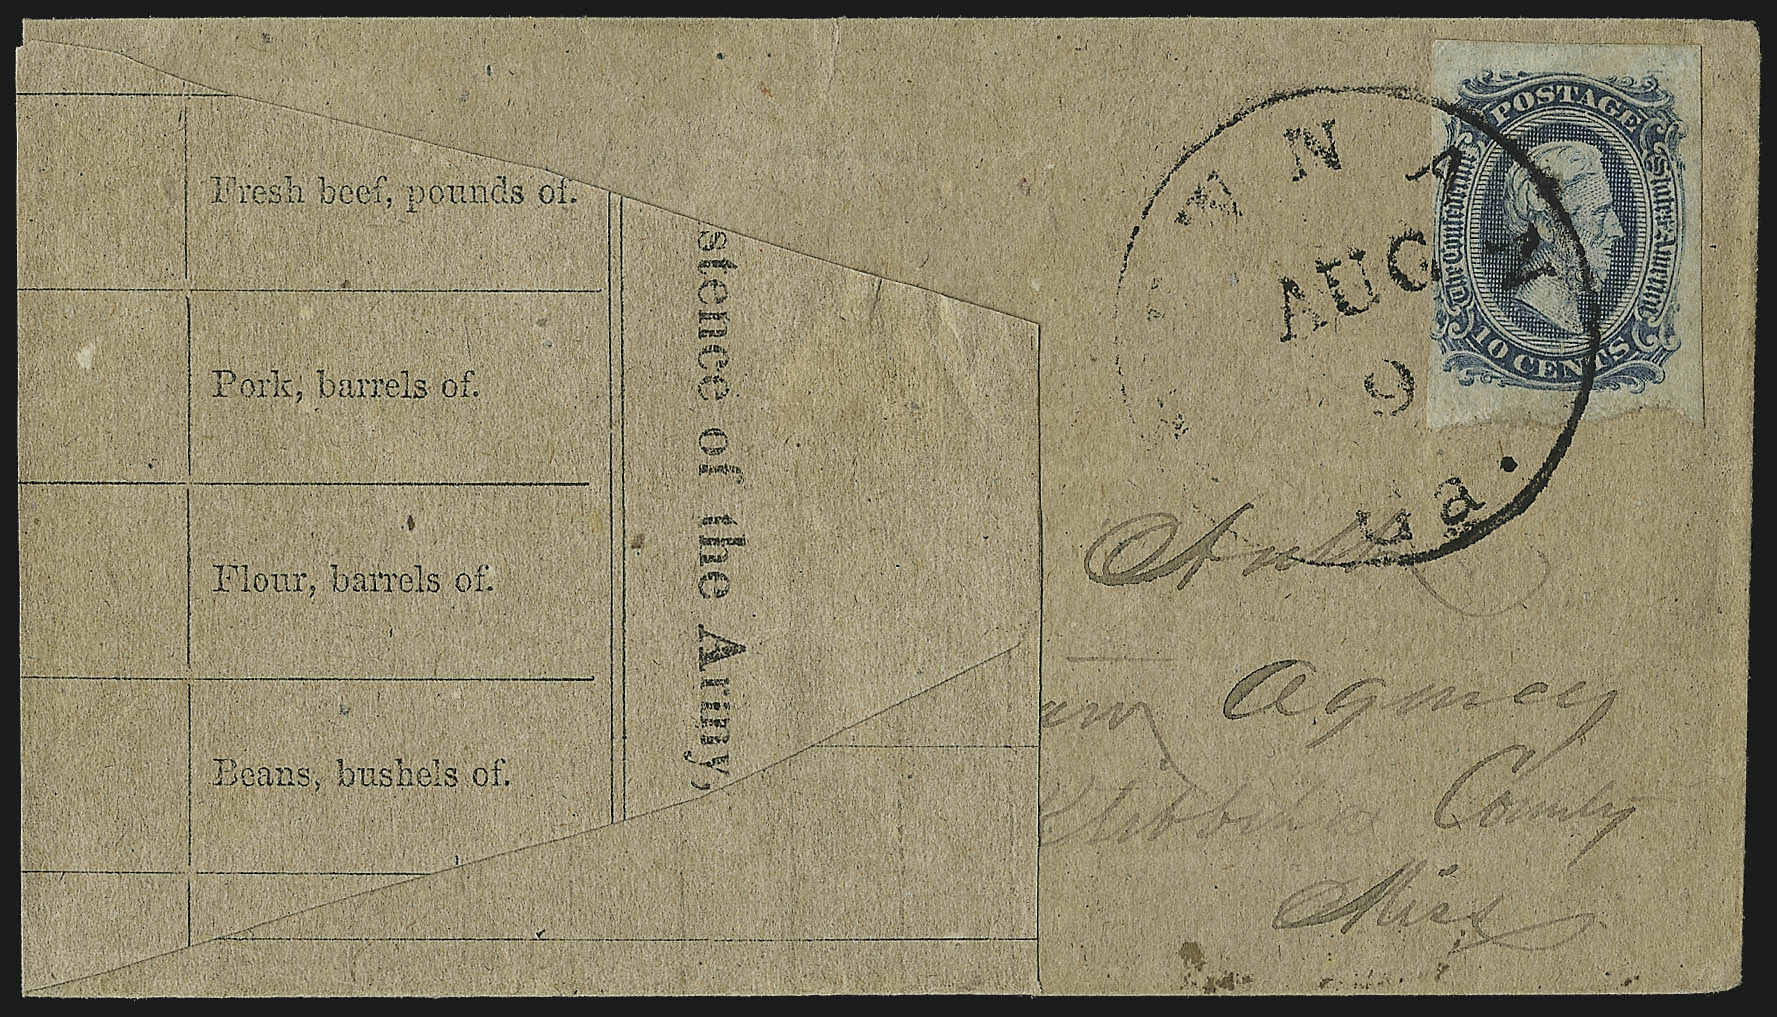 Fresh beef, pounds of.
Pork, barrels of.
Flour, barrels of.
Beans, bushels of.
stence of the Army,
AUG
9
Ga.
POSTAGE
The Confederate States of America
10 CENTS
Agency
County
Miss